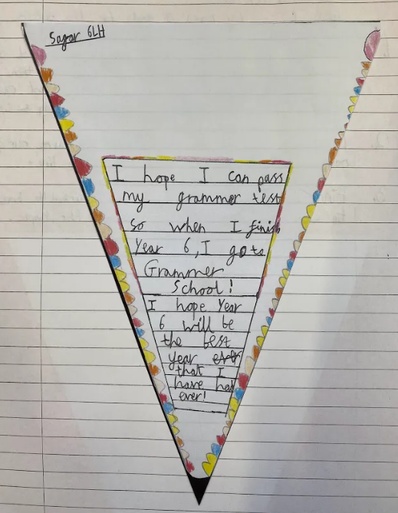 Sagar 6LH
I hope I can pass
my grammer test
so when I finish
Year 6, I go to
Grammer
School!
I hope Year
6 will be
the best
year
that I
have had
ever!